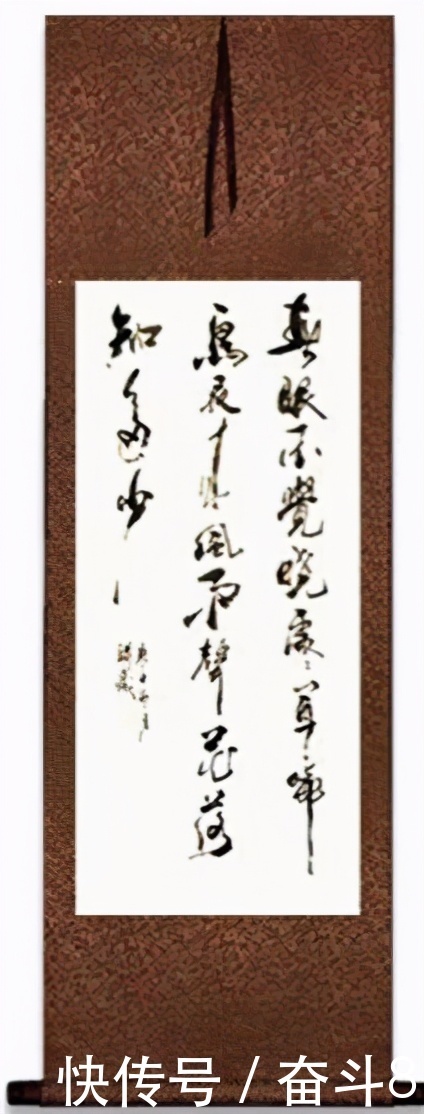 春眠不覺曉處々聞啼
鳥夜来風雨聲花落
知多少
快传号 / 奋斗8